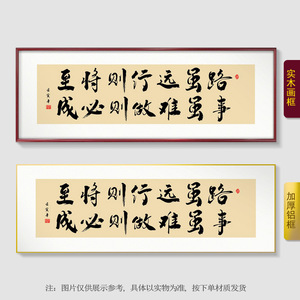 路虽远行则将至
事虽难做则必成
实木画框
路虽远行则将至
事虽难做则必成
加厚铝框
注：图片仅供展示参考，具体以实物为准，按下单材质发货